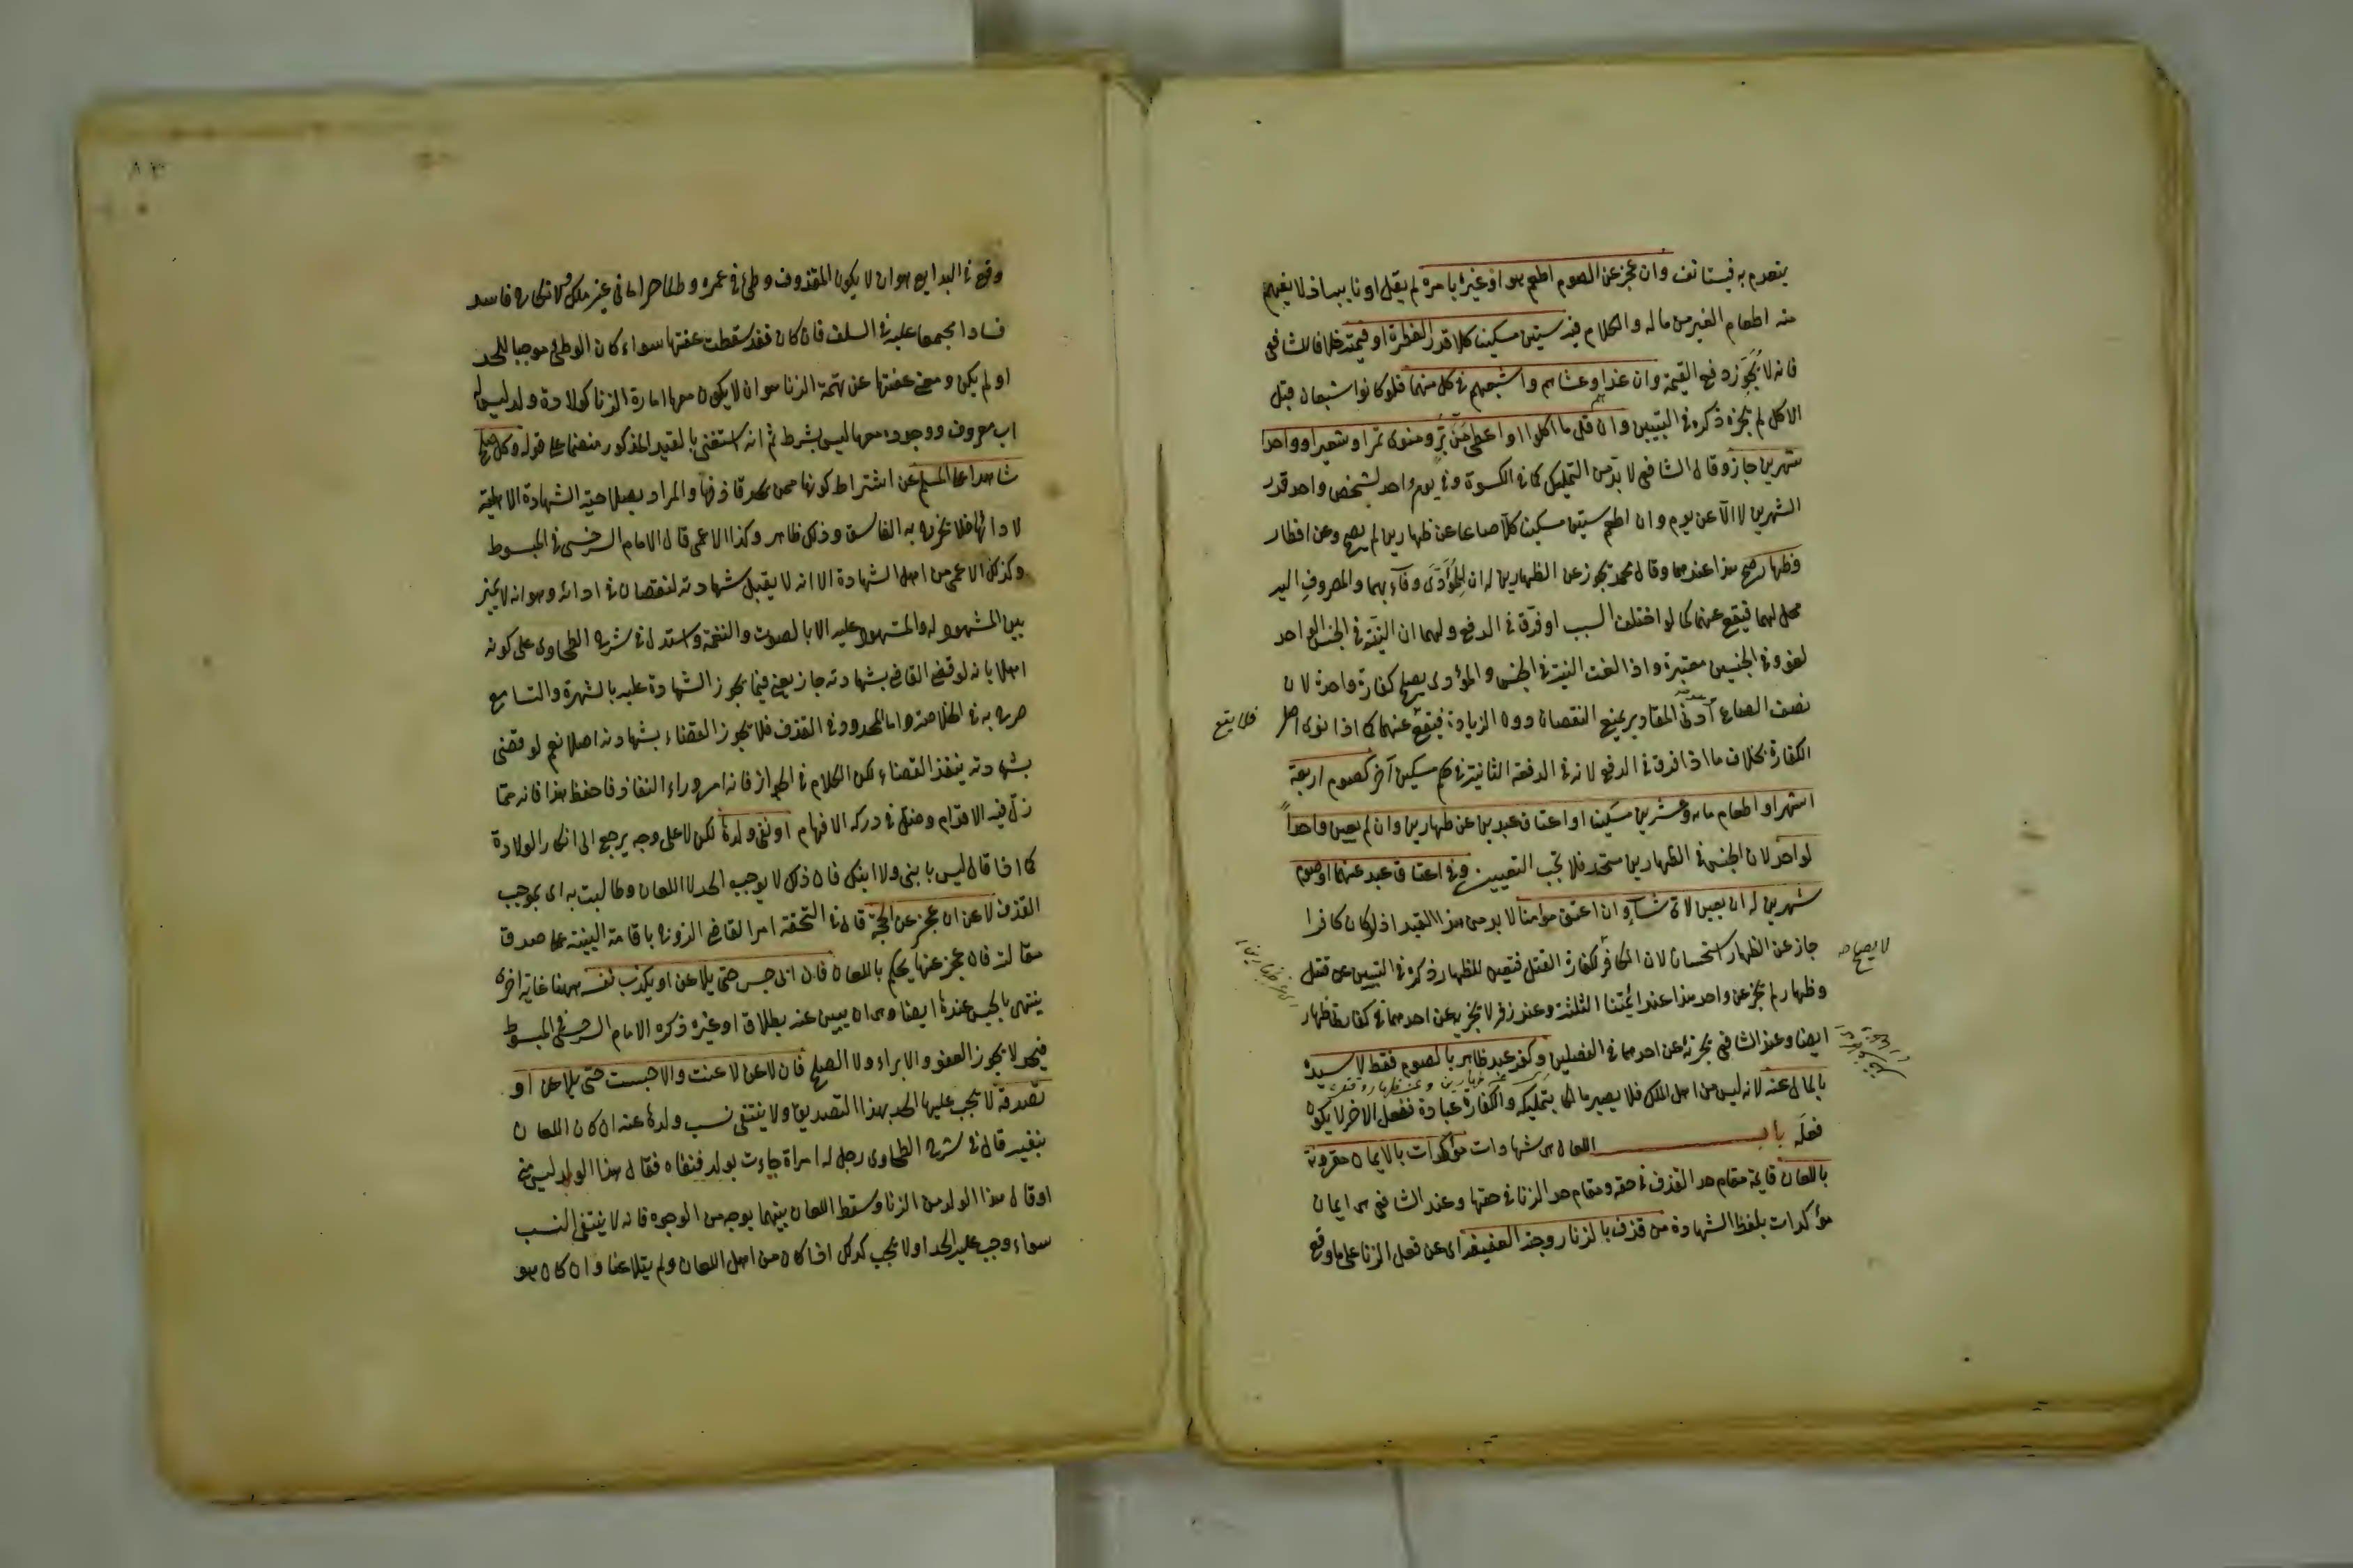 ينعدم به فيستأنف وان عجز عن الصوم اطعم هو او غيره بامره لم يقل او نايبه اذ لا يفهم
منه اطعام الغير من ماله والكلام فيه ستين مسكينا كلا قدر الفطرة او قيمته خلافا للشافعى
فانه لا يُجَوِّز دفع القيمة وان غداهم وعشاهم واشبعهم فى كل منهما فلو كانوا اشبعان قبل
الاكل لم يجزه ذكره فى التبيين وان قل ما اكلوا او اعطى مَنَّ بُرٍّ ومنوى تمر او شعير او واحدا
شهرين جاز وقال الشافعى لا بد من التمليك كما فى الكسوة وفى يوم واحد لشخص واحد قدر
الشهرين لا الا عن يوم وان اطعم ستين مسكينا كلا صاعا عن ظهارين لم يصح وعن افطار
وظهار صح هذا عندهما وقال محمد يجوز عن الظهارين له ان المُؤَدَّى وفآء بهما والمصروف اليه
محل لهما فيقع عنهما كما لو اختلف السبب او فرّق فى الدفع ولهما ان النيّة فى الجنس الواحد
لغو وفى الجنسين معتبرة واذا لغت النية فى الجنس والمؤدى يصلح كفارة واحدة لان
نصف الصاع أدنى المقادير يمنع النقصان دون الزيادة فيقع عنهما كما اذا نوى اصل
فلا يقع
الكفارة بخلاف ما اذا فرق فى الدفع لانه فى الدفعة الثانية فى حكم مسكين آخر كصوم اربعة
اشهر او اطعام مائة وعشرين مسكينا او اعتاق عبدين عن ظهارين وان لم يعين واحداً
لواحد لان الجنس فى الظهارين متحد فلا يجب التعيين وفى اعتاق عبد عنهما او صوم
شهرين له ان يعين لاى شآء وان اعتق مؤمنا لا بد من هذا القيد اذ لو كان كافرا
جاز عن الظهار استحسانا لان الكافر لكفارة القتل فتعين للظهار ذكره فى التبيين عن قتل
لا يصلح صح
وظهار لم يجز عن واحد هذا عند ائمّتنا الثلثة وعند زفر لا يجزيه عن احدهما فى كفارتى ظهار
ايضا وعند الشافعى يجزئه عن احدهما فى الفصلين وكفر عبد ظاهر بالصوم فقط لا سيده
بالمال عنه لانه ليس من اهل الملك فلا يصير مالكا بتمليكه والكفارة عبادة ففعل الاخر لا يكون
فعلَه باب اللعان هى شهادات مؤكدات بالايمان مقرونة
باللعان قايمة مقام حد القذف فى حقه ومقام حد الزنا فى حقها وعند الشافعى هى ايمان
مؤكدات بلفظ الشهادة من قذف بالزنا زوجته العفيفة اى عن فعل الزنا على ما وقع
وقع فى البدايع هو ان لا يكون المقذوف وطئ فى عمره وطئا حراما فى غير ملك ولا نكاح فاسد
فسادا مجمعا عليه فى السلف فان كان فقد سقطت عفتها سواء كان الوطئ موجبا للحد
او لم يكن ومعنى عفتها عن تهمة الزنا هو ان لا يكون معها امارة الزنا كولادة ولد ليس له
اب معروف ووجوده معها ليس بشرط ثم انه استغنى بالقيد المذكور منضما على قوله وكل صلح
شاهدا على المسلم عن اشتراط كونها ممن يحد قاذفها والمراد بصلاحية الشهادة الاهلية
لادائها فلا يخرج به الفاسق وذلك ظاهر وكذا الاعمى قال الامام السرخسى فى المبسوط
وكذلك الاعمى من اهل الشهادة الا انه لا يقبل شهادته لنقصان فى ادائه وهو انه لا يميز
بين المشهود له والمشهود عليه الا بالصوت والنغمة واستدل فى شرح الطحاوى على كونه
اهلا بانه لو قضى القاضى بشهادته جاز يعنى فيما يجوز الشهادة عليه بالشهرة والتسامع
صرح به فى الخلاصة واما المحدود فى القذف فلا يجوز القضاء بشهادته اصلا نعم لو قضى
بشهادته ينفذ القضاء لكن الكلام فى الجواز فانه امر وراء النفاذ فاحفظ هذا فانه ممّا
زلّ فيه الاقدام وضل فى دركه الافهام او نفى ولدها لكن لا على وجه يرجع الى انكار الولادة
كما اذا قال ليس بابنى ولا ابنك فان ذلك لا يوجب الحد لا اللعان وطالبت به اى بموجب
القذف لاعن ان عجز عن الحجة قال فى التحفة امر القاضى الزوج باقامة البينة على صدق
مقالته فان عجز عنها يحكم باللعان فان ابى حبس حتى يلاعن او يكذب نفسه ههنا غاية اخرى
ينتهى بالحبس عندها ايضا وهى ان يبين عنه بطلاق او غيره ذكره الامام السرخسى فى المبسوط
فيحد لا يجوز العفو والابراء ولا الصلح فان لاعن لاعنت والا حبست حتى يلاعن او
تصدقه لا يجب عليها الحد بهذا التصديق ولا ينتفى نسب ولدها عنه اذ كان اللعان
بنفيه قال فى شرح الطحاوى رجل له امراة جاءت بولد فنفاه فقال هذا الولد ليس منى
او قال هذا الولد من الزنا وسقط اللعان بينهما بوجه من الوجوه فانه لا ينتفى النسب
سواء وجب عليه الحد او لا يجب كذلك اذا كان من اهل اللعان ولم يتلاعنا وان كان هو